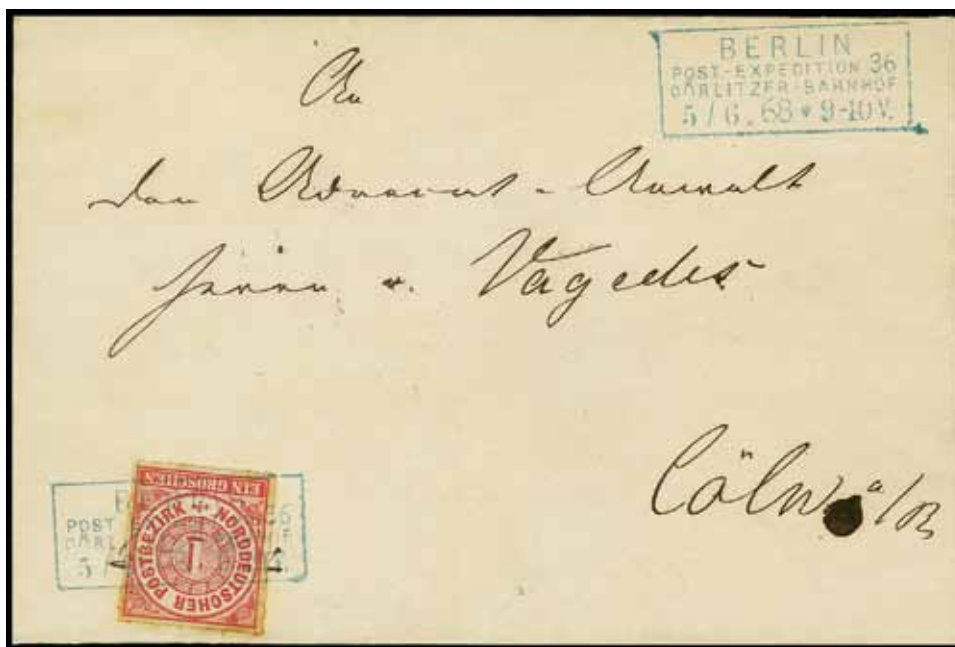 BERLIN
POST-EXPEDITION 36
GÖRLITZER-BAHNHOF
5/6.68 * 9-10 V.
An
den Advocat-Anwalt
Herrn v. Vagedes
Cöln a/R
EIN GROSCHEN
NORDDEUTSCHER POSTBEZIRK
1
B
6
POST
5/